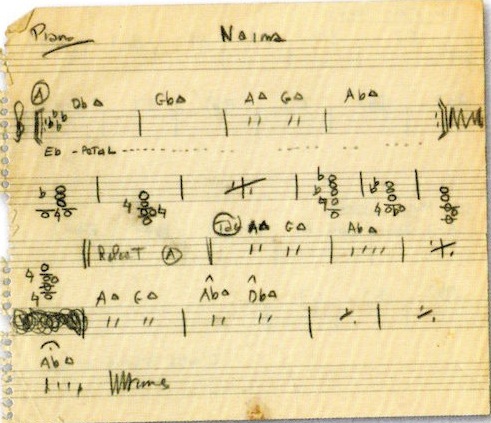 Piano Naima
A Db△ Gb△ A△ G△ Ab△
Eb - PEDAL
Repeat A Tag A△ G△ Ab△
4
4
A△ G△ Ab△ Db△
Ab△